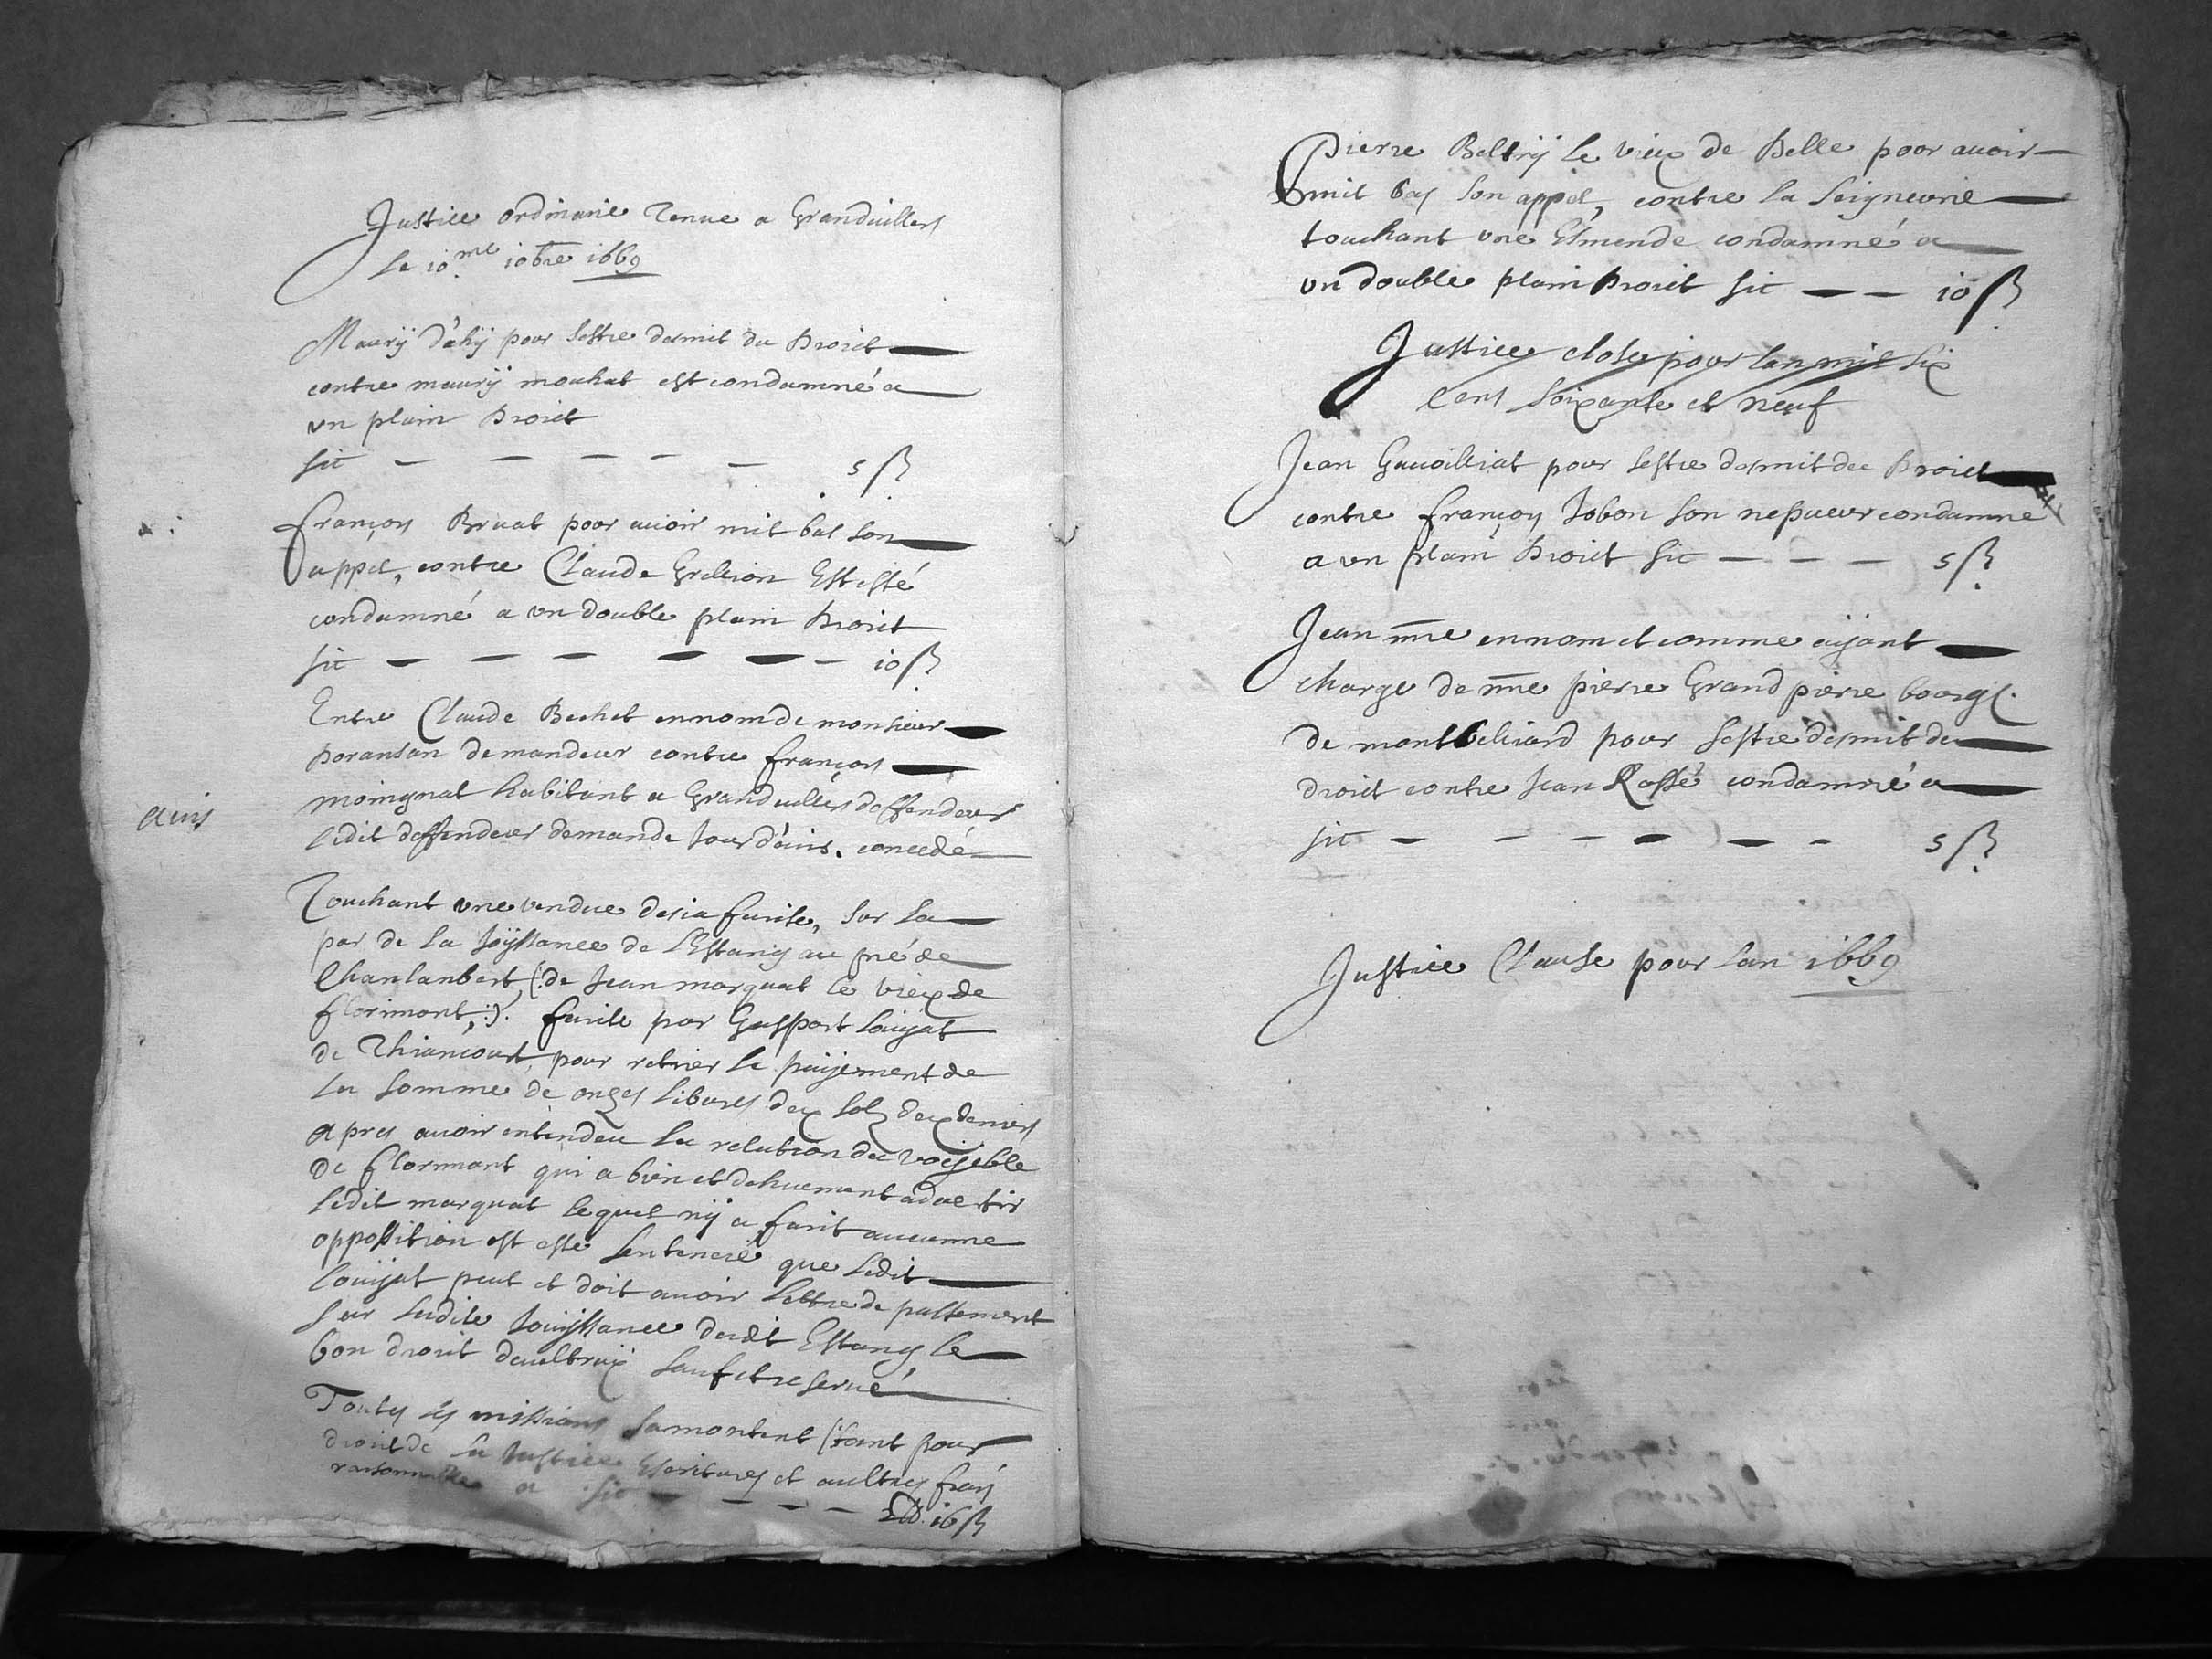 Justice ordinarie Tenue a Granduillers
Le 10.me 10bre 1669
Maurij Dahij pour sestre desmit du Droict
contre maurij mouhat est condamné a
vn plain Droict
sic — — — — — 5 ß
françois Bruat poor auoir mit bas son
appel, contre Claude Grillion Est esté
condamné a vn double plain Droict
sic — — — — — — 10 ß
Entre Claude Bechet en nom de monsieur
poransan demandeur contre françois
moingnat habitant a Granduilles deffendeur
auis
ledit deffendeur demande Jour d'auis. concedé
Touchant vne vendue desia faicte, sur la
par de la Joÿssance de L'Estang au pré de
Chanlanbert, (: de Jean marquat le vieux de
florimont, :). faicte par Gaspart Louijat
de Thiancourt, pour retirer le paijement de
la somme de onzes liburs deux solz deux deniers
apres auoir entendeu la relation du voijeble
de florimont qui a bien et dehuement aduertir
ledit marquat lequel nij a faict aucunne
oppossition est esté sentencié que ledit
Louijat peut et doit auoir lettre de passement
sur ladite Jouijssance dudit Estang le
bon droict daultruij sauf et reserué
Toutes les missions samontent (: tant pour
droict de la Justice Escritures et aultres frais
raisonnables a sic — — — — 16 ß
Pierre Beltrij le vieux de Delle poor auoir
mit bas son appel, contre la seigneurie
touchant vne Esmende condamné a
vn double plain Droict sic — — 10 ß
Justice close pour lan mil six
cens soixante et neuf
Jean Gauoilliat pour sestre desmit du Droict
contre françoy Jobon son nepueur condamne
a vn plain Droict sic — — — 5 ß
Jean mre en nom et comme aijant
charge de mre pierre Grand pierre bourg.
de montbeliard pour sestre desmit du
droict contre Jean Rossé condamné a
sic — — — — — — 5 ß
Justice Clause pour lan 1669